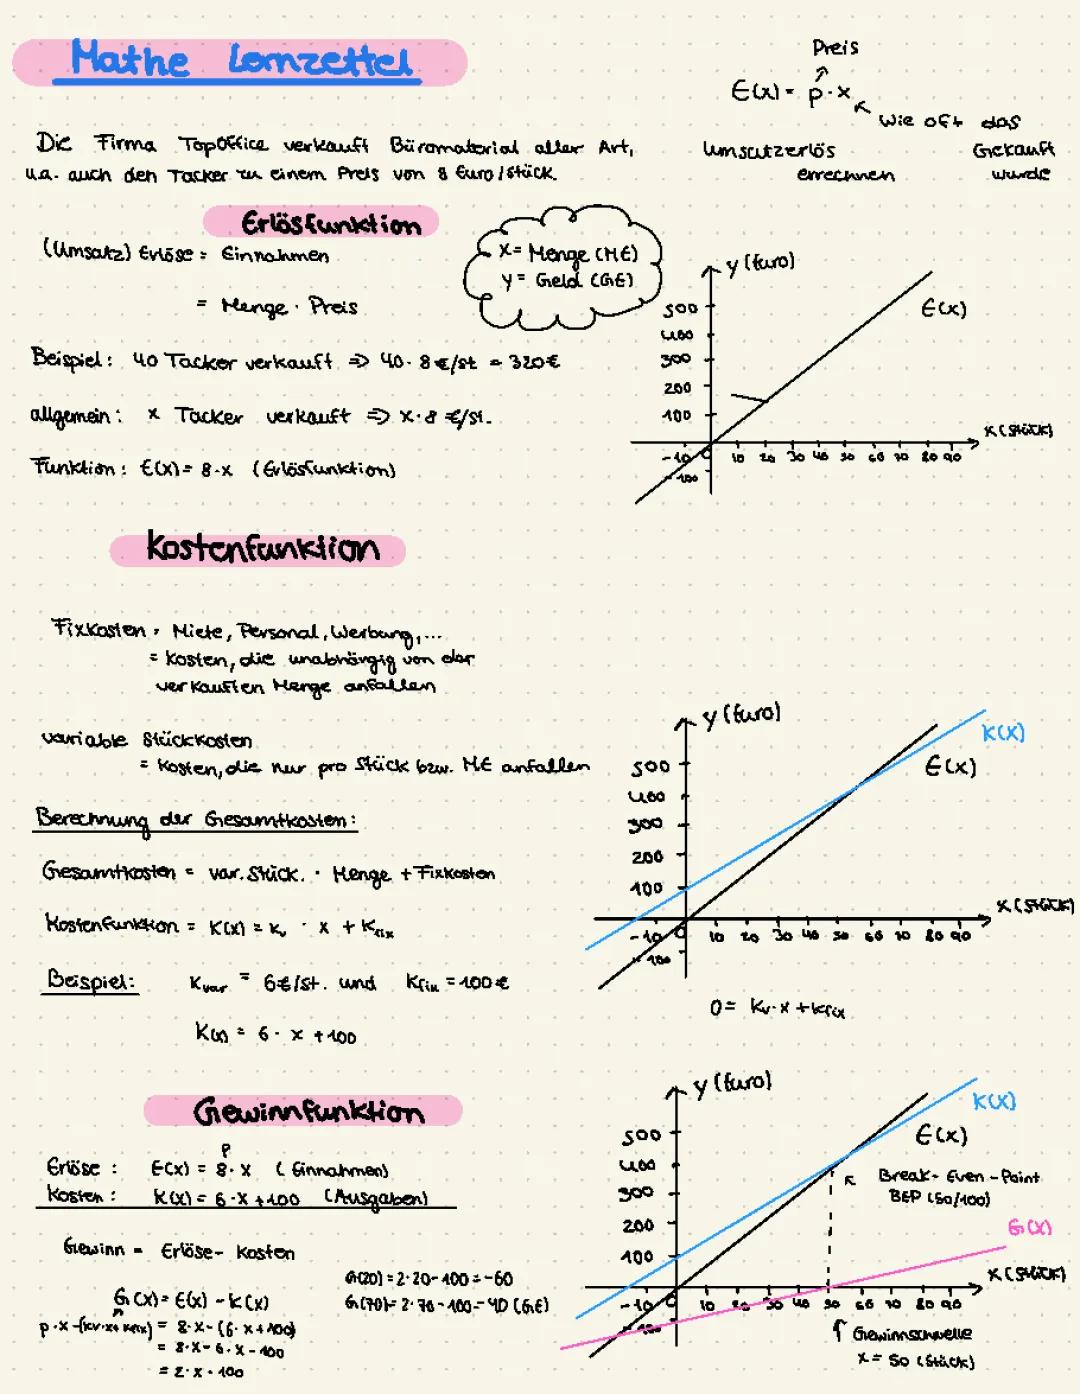 Mathe Lernzettel
Preis
E(x) = p · x
Wie oft das
Gekauft
wurde
Umsatzerlös
errechnen
Die Firma TopOffice verkauft Büromaterial aller Art,
u.a. auch den Tacker zu einem Preis von 8 Euro/Stück.
Erlösfunktion
(Umsatz) Erlöse = Einnahmen
= Menge · Preis
x = Menge (ME)
y = Geld (GE)
Beispiel: 40 Tacker verkauft => 40 · 8 €/st = 320€
allgemein: x Tacker verkauft => x · 8 €/st.
Funktion: E(x) = 8 · x (Erlösfunktion)
y (Euro)
E(x)
500
400
300
200
100
x (Stück)
-10 0 10 20 30 40 50 60 70 80 90
-100
Kostenfunktion
Fixkosten = Miete, Personal, Werbung, ...
= Kosten, die unabhängig von der
verkauften Menge anfallen
variable Stückkosten
= Kosten, die nur pro Stück bzw. ME anfallen
Berechnung der Gesamtkosten:
Gesamtkosten = var. Stück. · Menge + Fixkosten
Kostenfunktion = K(x) = Kv · x + Kfix
Beispiel: Kvar = 6€/st. und Kfix = 100€
K(x) = 6 · x + 100
y (Euro)
K(x)
E(x)
500
400
300
200
100
x (Stück)
-10 0 10 20 30 40 50 60 70 80 90
-100
0 = Kv · x + Kfix
Gewinnfunktion
p
Erlöse: E(x) = 8 · x (Einnahmen)
Kosten: K(x) = 6 · x + 100 (Ausgaben)
Gewinn = Erlöse - Kosten
G(x) = E(x) - K(x)
p·x-(Kv·x+Kfix) = 8·x-(6·x+100)
= 8·x-6·x-100
= 2·x-100
G(20) = 2·20-100 = -60
G(70) = 2·70-100 = 40 (GE)
y (Euro)
K(x)
E(x)
500
400
300
200
100
Break-Even-Point
BEP (50/400)
G(x)
x (Stück)
-10 0 10 20 30 40 50 60 70 80 90
-100
Gewinnschwelle
x = 50 (Stück)